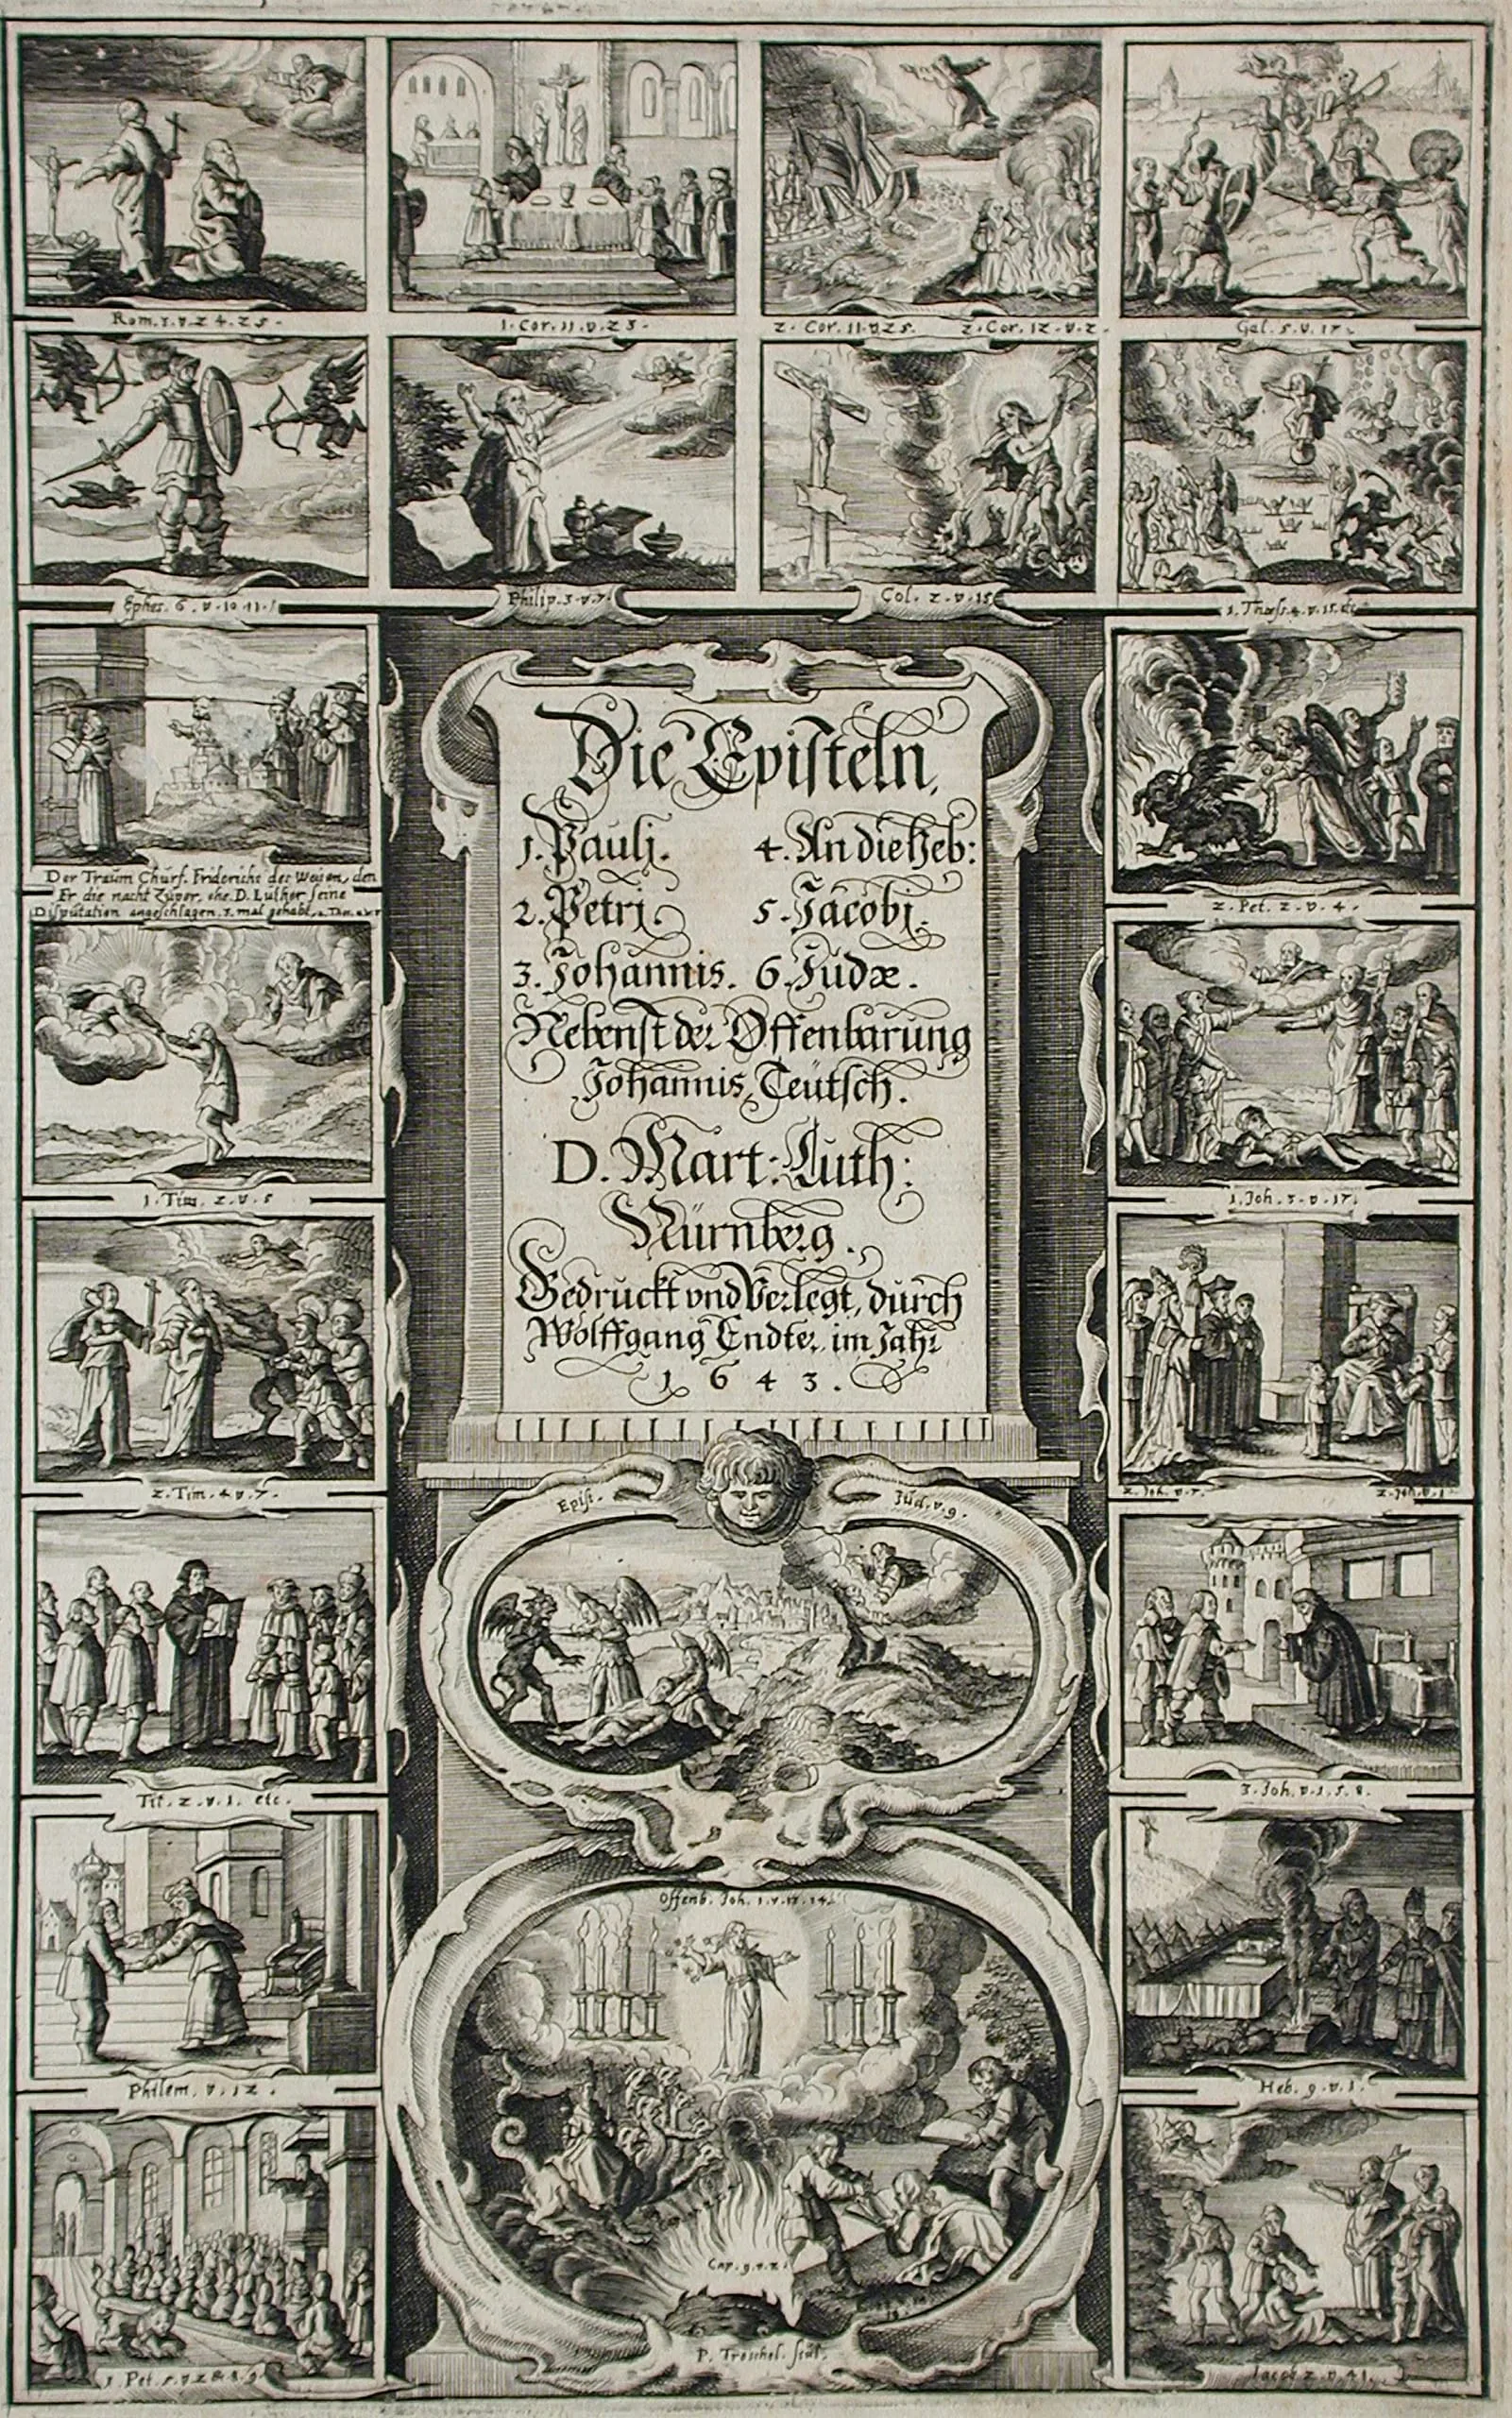 Rom. 1. v. 24. 25.
1. Cor. 11. v. 23.
2. Cor. 11. v. 25. 2. Cor. 12. v. 2.
Gal. 5. v. 17.
Ephes. 6. v. 10. 11.
Philip. 3. v. 7.
Col. 2. v. 15
1. Thess. 4. v. 15. etc
Der Traum Churf. Friderichs des Weisen, den
Er die nacht Zuvor, ehe D. Luther seine
Disputation angeschlagen. 3. mal gehabt.
2. Pet. 2. v. 4.
Die Episteln,
1. Paulj. 4. An die Heb:
2. Petrj. 5. Jacobj.
3. Johannis. 6. Judæ.
Nebenst der Offenbarung
Johannis, Teutsch.
D. Mart: Luth:
Nürnberg.
Gedruckt vnd Verlegt, durch
Wolffgang Endter, im Jahr
1643.
1. Tim. 2. v. 5
1. Joh. 3. v. 17.
2. Tim. 4. v. 7.
2. Joh. v. 7. 2. Joh. v. 1
Epist. Jud. v. 9.
Tit. 2. v. 1. etc.
3. Joh. v. 1. 5. 8.
Offenb. Joh. 1. v.
Philem. v. 12.
Heb. 9. v. 1.
Cap. 9. v. 2.
1 Pet. 5. v. 2 & 8. 9
P. Troschel. sculp.
Jacob 2. v.